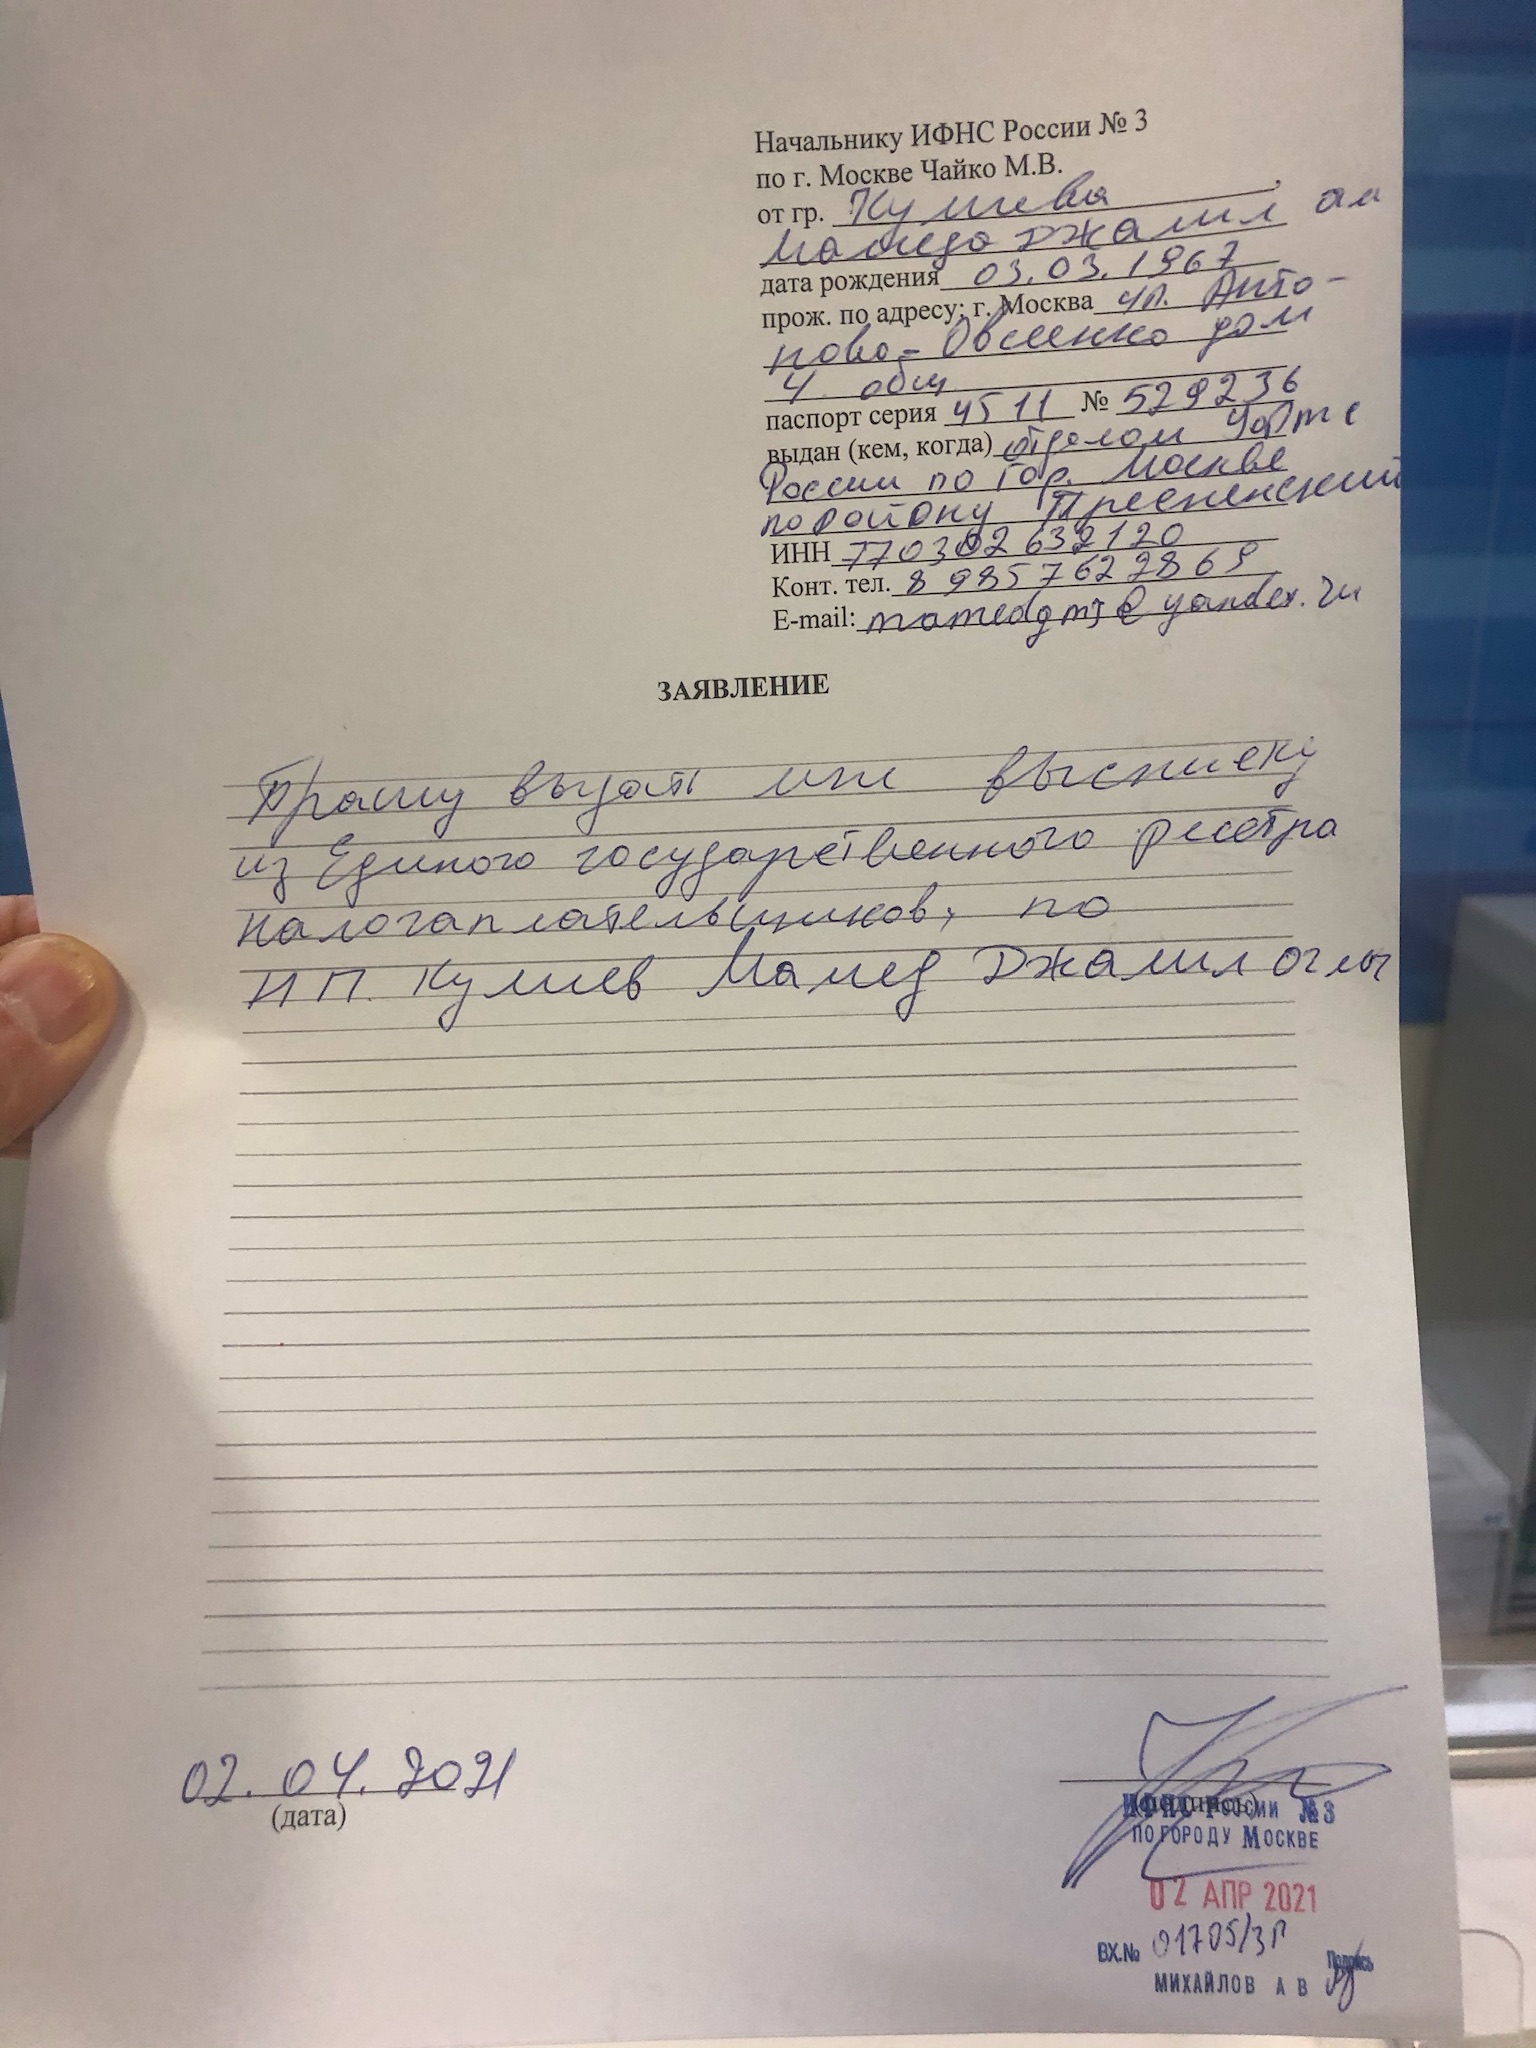 Начальнику ИФНС России № 3
по г. Москве Чайко М.В.
от гр. Кулиева ,
Мамеда Джамил
дата рождения 03.03.1967
прож. по адресу: г. Москва ул. Анто-
ново-Овсеенко дом
4. общ
паспорт серия 4511 № 529236
выдан (кем, когда) отделом УФМС
России по гор. Москве
по району Пресненский
ИНН 770302632120
Конт. тел. 8 985 762 28 69
E-mail: @yandex.ru
ЗАЯВЛЕНИЕ
Прошу выдать мне выписку
из Единого государственного реестра
налогаплательщиков, по
ИП. Кулиев Мамед Джамил оглы
02.04.2021
(дата)
(подпись)
ИФНС РОССИИ №3
ПО ГОРОДУ МОСКВЕ
02 АПР 2021
ВХ.№ 01705/ЗП
Подпись
МИХАЙЛОВ А В